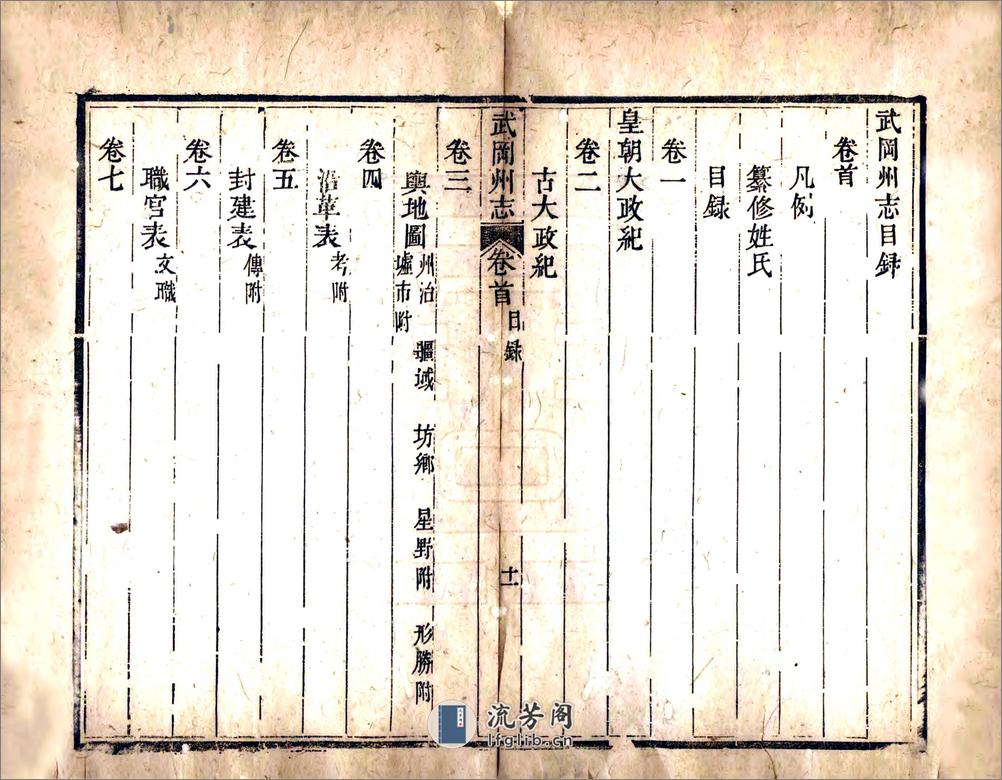 武岡州志目録
卷首
凡例
纂修姓氏
目録
卷一
皇朝大政紀
卷二
古大政紀
武岡州志
卷首
目録
十一
卷三
輿地圖 州治 疆域 坊鄉 星野附 形勝附
墟市附
卷四
沿革表 考附
卷五
封建表 傳附
卷六
職官表 文職
卷七
流芳阁
lfglib.cn